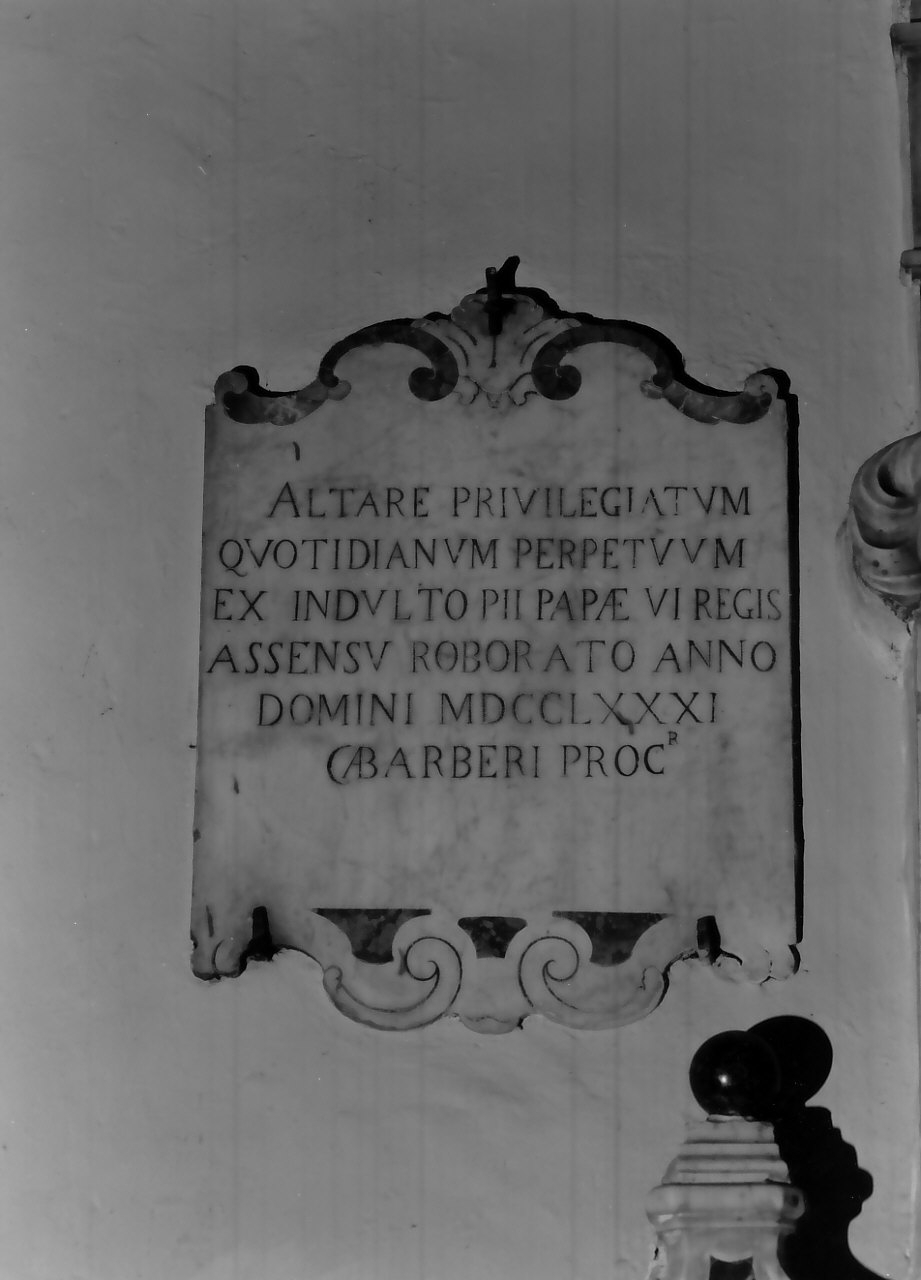 ALTARE PRIVILEGIATVM
QVOTIDIANVM PERPETVVM
EX INDVLTO PII PAPÆ VI REGIS
ASSENSV ROBORATO ANNO
DOMINI MDCCLXXXI
BARBERI PROC^R